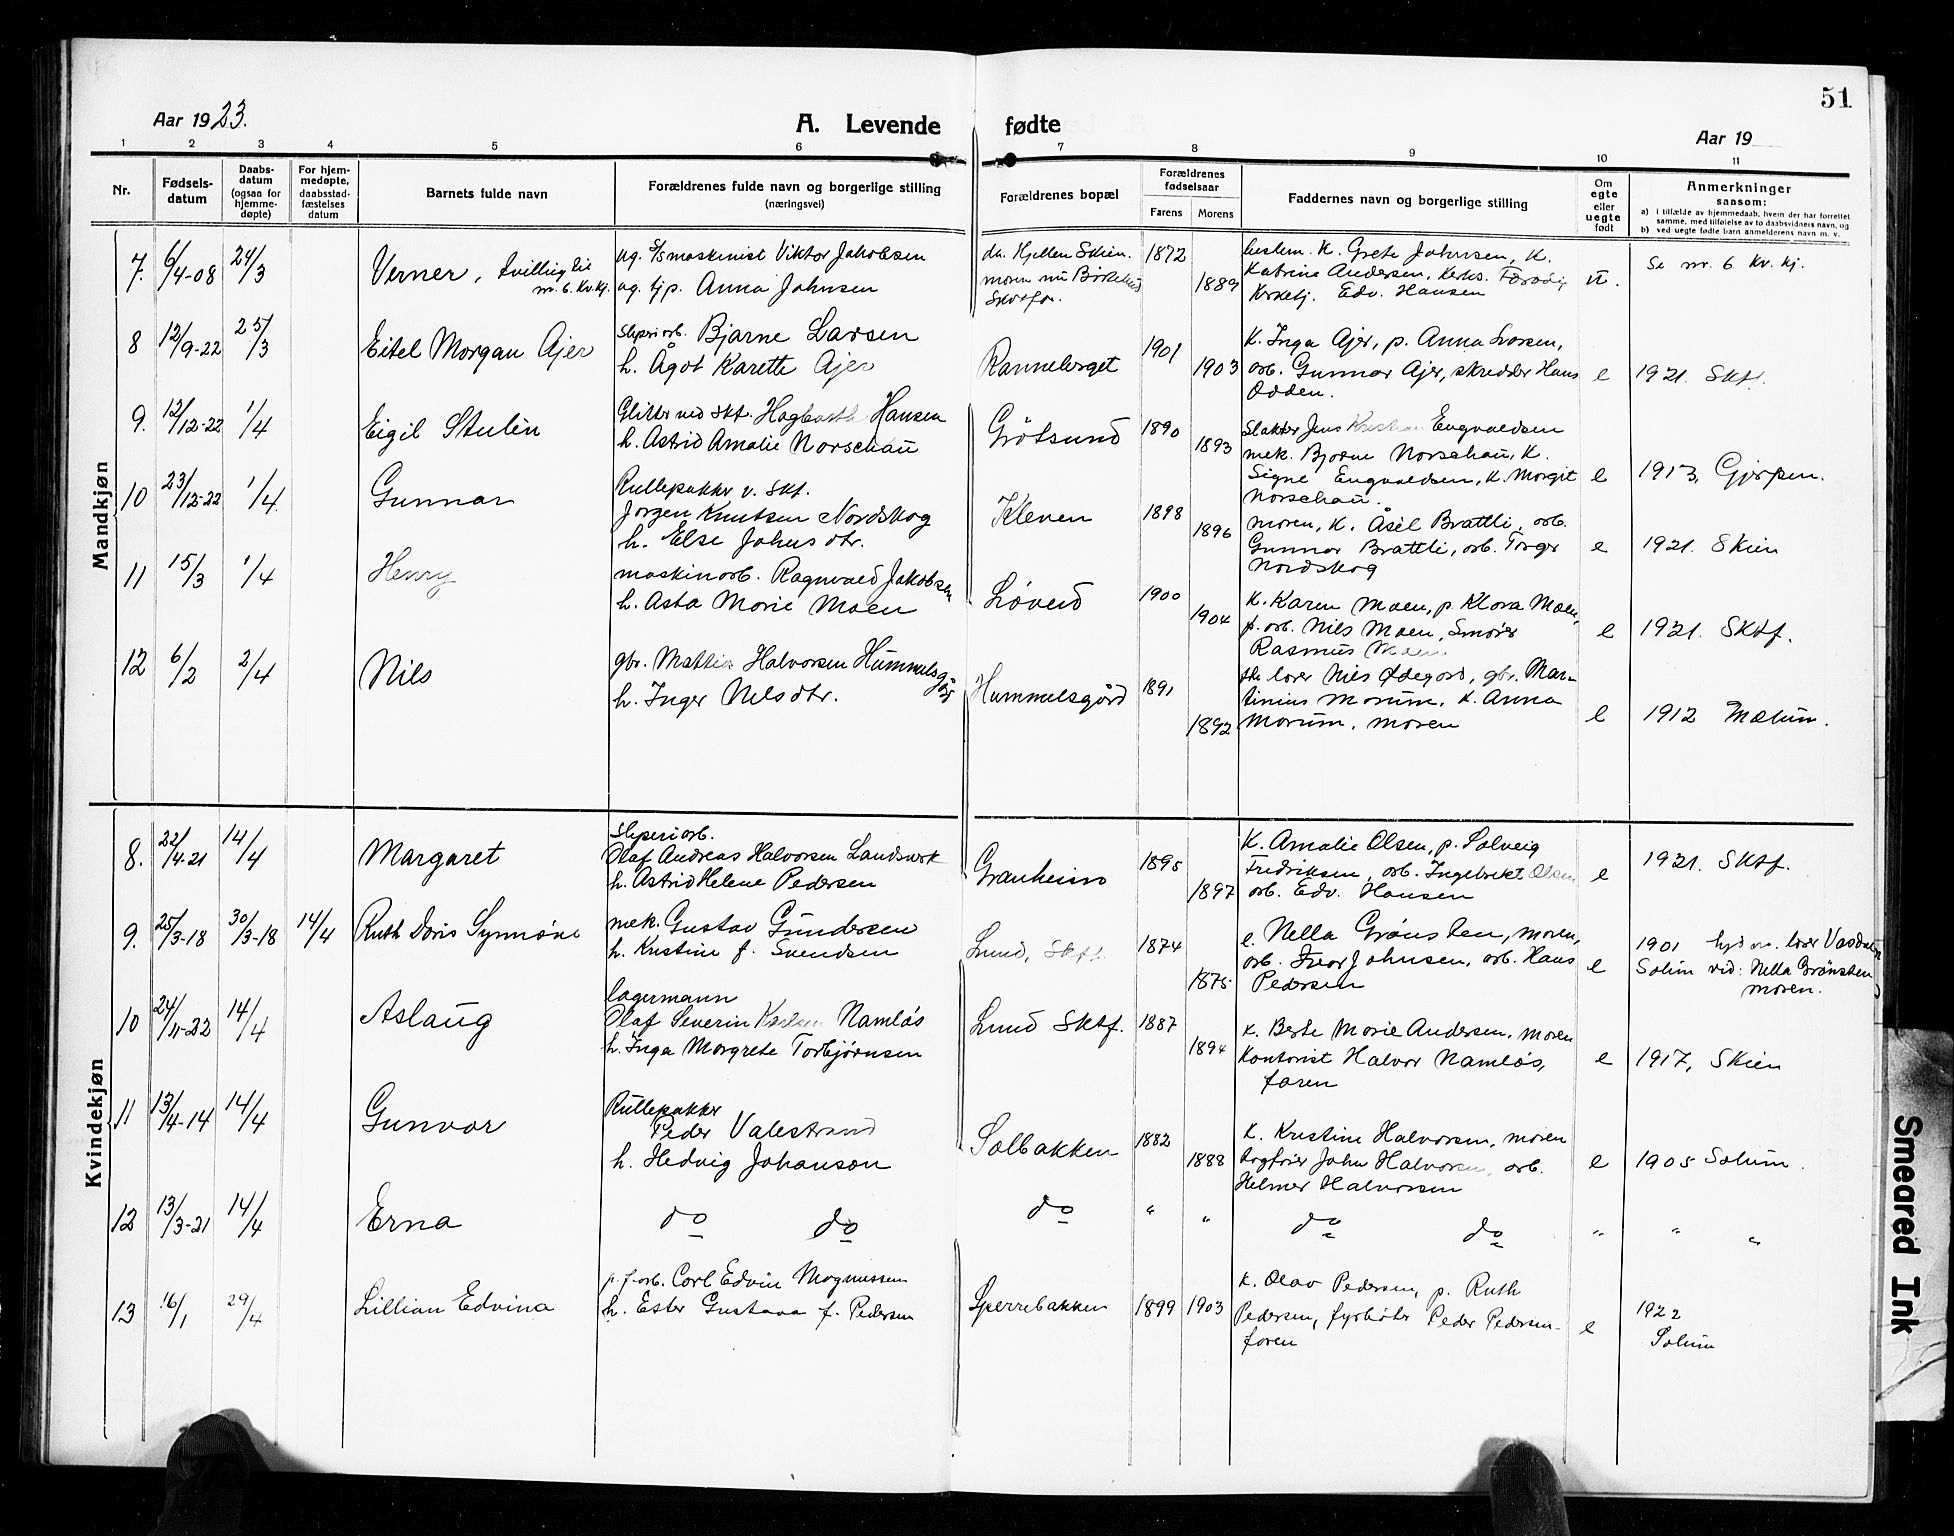 51
Aar 1923.
A. Levende fødte
Aar 19
1 2 3 4 5 6 7 8 9 10 11
Nr.
Fødsels-
datum
Daabs-
datum
(ogsaa for
hjemme-
døpte)
For hjem-
medøpte,
daabsstad-
fæstelses
datum
Barnets fulde navn
Forældrenes fulde navn og borgerlige stilling
(næringsvei)
Forældrenes bopæl
Forældrenes
fødselsaar
Farens Morens
Faddernes navn og borgerlige stilling
Om
egte
eller
uegte
født
Anmerkninger
saasom:
a) i tilfælde av hjemmedaab, hvem der har forrettet
samme, med tilføielse av to daabsvidners navn, og
b) ved uegte fødte barn anmelderens navn m. v.
Mandkjøn
7. 6/4-08 24/3 Verner, tvilling til
nr. 6. Kv.kj.
ug. S/S maskinist Viktor Jakobsen
ug. tjp. Anna Johnsen
da. Hjellen Skien.
moren nu
Skotfos.
1872 1889
bestem. K. Grete Johnsen, K.
Katrine Andersen, Kerks.
Kirketj. Edv. Hansen
u.
Se nr. 6 Kv. kj.
8 12/9-22 25/3 Eitel Morgan Ajer
Sliperiarb. Bjarne Larsen
h. Ågot Karette Ajer
Ranneberget 1901 1903
K. Inga Ajer, p. Anna Larsen,
arb. Gunnar Ajer, skredder Hans
Odden.
e 1921. Sktf.
9. 12/12-22 1/4 Eigil Stulin
Glitter ved Skf. Hagbarth Hansen
h. Astrid Amalie Norschau
Grøtsund 1890 1893
Slakter Jens Kristian Engvaldsen
mek. Bjarne Norschau, K.
Signe Engvaldsen, K. Margit
Norschau.
e 1913, Gjerpen.
10 23/12-22 1/4 Gunnar
Rullepakker v. Skf.
Jørgen Knutsen Nordskog
h. Else Johnsdtr.
Kleven 1898 1896
moren, K. Åsel Brattli, arb.
Gunnar Brattli, arb. Torger
Nordskog
e 1921. Skien
11 15/3 1/4 Henry
maskinarb. Ragnvald Jakobsen
h. Asta Marie Moen
Løveid 1900 1904
K. Karen Moen, p. Klara Moen,
f. arb. Nils Moen, Smører
Rasmus Moen
e 1921. Sktf.
12 6/2 2/4 Nils
gbr. Mathias Halvorsen Hummelsgård
h. Inger Nelsdtr.
Hummelsgård 1891 1892
lærer Nils Ødegård, gbr. Mar-
tinius Mørum. K. Anna
Mørum. moren
e 1912 Mælum.
Kvindekjøn
8. 22/4-21 14/4 Margaret
Sliperiarb.
Olaf Andreas Halvorsen Landsverk
h. Astrid Helene Pedersen
Granheim 1895 1897
K. Amalie Olsen, p. Solveig
Fredriksen, arb. Ingebrekt Olsen
arb. Edv. Hansen
e 1921. Sktf.
9. 25/3-18 30/3-18 14/4 Ruth Doris Synnøve
mek. Gustav Gundersen
h. Kristine f. Svendsen
Lund, Sktf. 1874 1875
e. Nella Grønsten, moren,
arb. Ivar Johnsen, arb. Hans
Pedersen
e 1901
Solum vid: Nella Grønsten
moren.
10 24/4-22 14/4 Aslaug
lagermann
Olaf Severin Karlsen Namløs
h. Inga Margrete Torbjørnsen
Lund Sktf. 1887 1894
K. Berte Marie Andersen, moren
Kontorist Halvor Namløs,
faren
e 1917, Skien
11 13/4-14 14/4 Gunvor
Rullepakker
Peder Valestrand
h. Hedvig Johanson
Solbakken 1882 1888
K. Kristine Halvorsen, moren
togfører John Halvorsen, arb.
Helmer Halvorsen
e 1905 Solum.
12 13/3-21 14/4 Erna
do do do " "
do do " " "
13 16/1 29/4 Lillian Edvina
p. f. arb. Carl Edvin Magnussen
h. Ester Gustava f. Pedersen
Sperrebakken 1899 1903
K. Olav Pedersen, p. Ruth
Pedersen, fyrbøter Peder Pedersen-
faren
e 1922
Solum
Smeared Ink